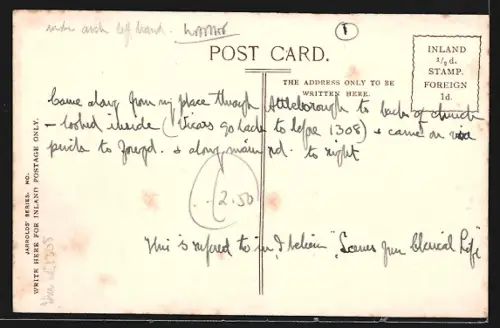 under arch left hand.
1
POST CARD.
THE ADDRESS ONLY TO BE
WRITTEN HERE.
INLAND
½d.
STAMP.
FOREIGN
1d.
Came along from my place through Attleborough to back of church
- looked inside (Vicars go back to before 1308) & came on via
path to foregd. & along main rd. to right
2.50
This is referred to in, I believe, "Scenes from Clerical Life"
JARROLDS' SERIES. NO.
WRITE HERE FOR INLAND POSTAGE ONLY.